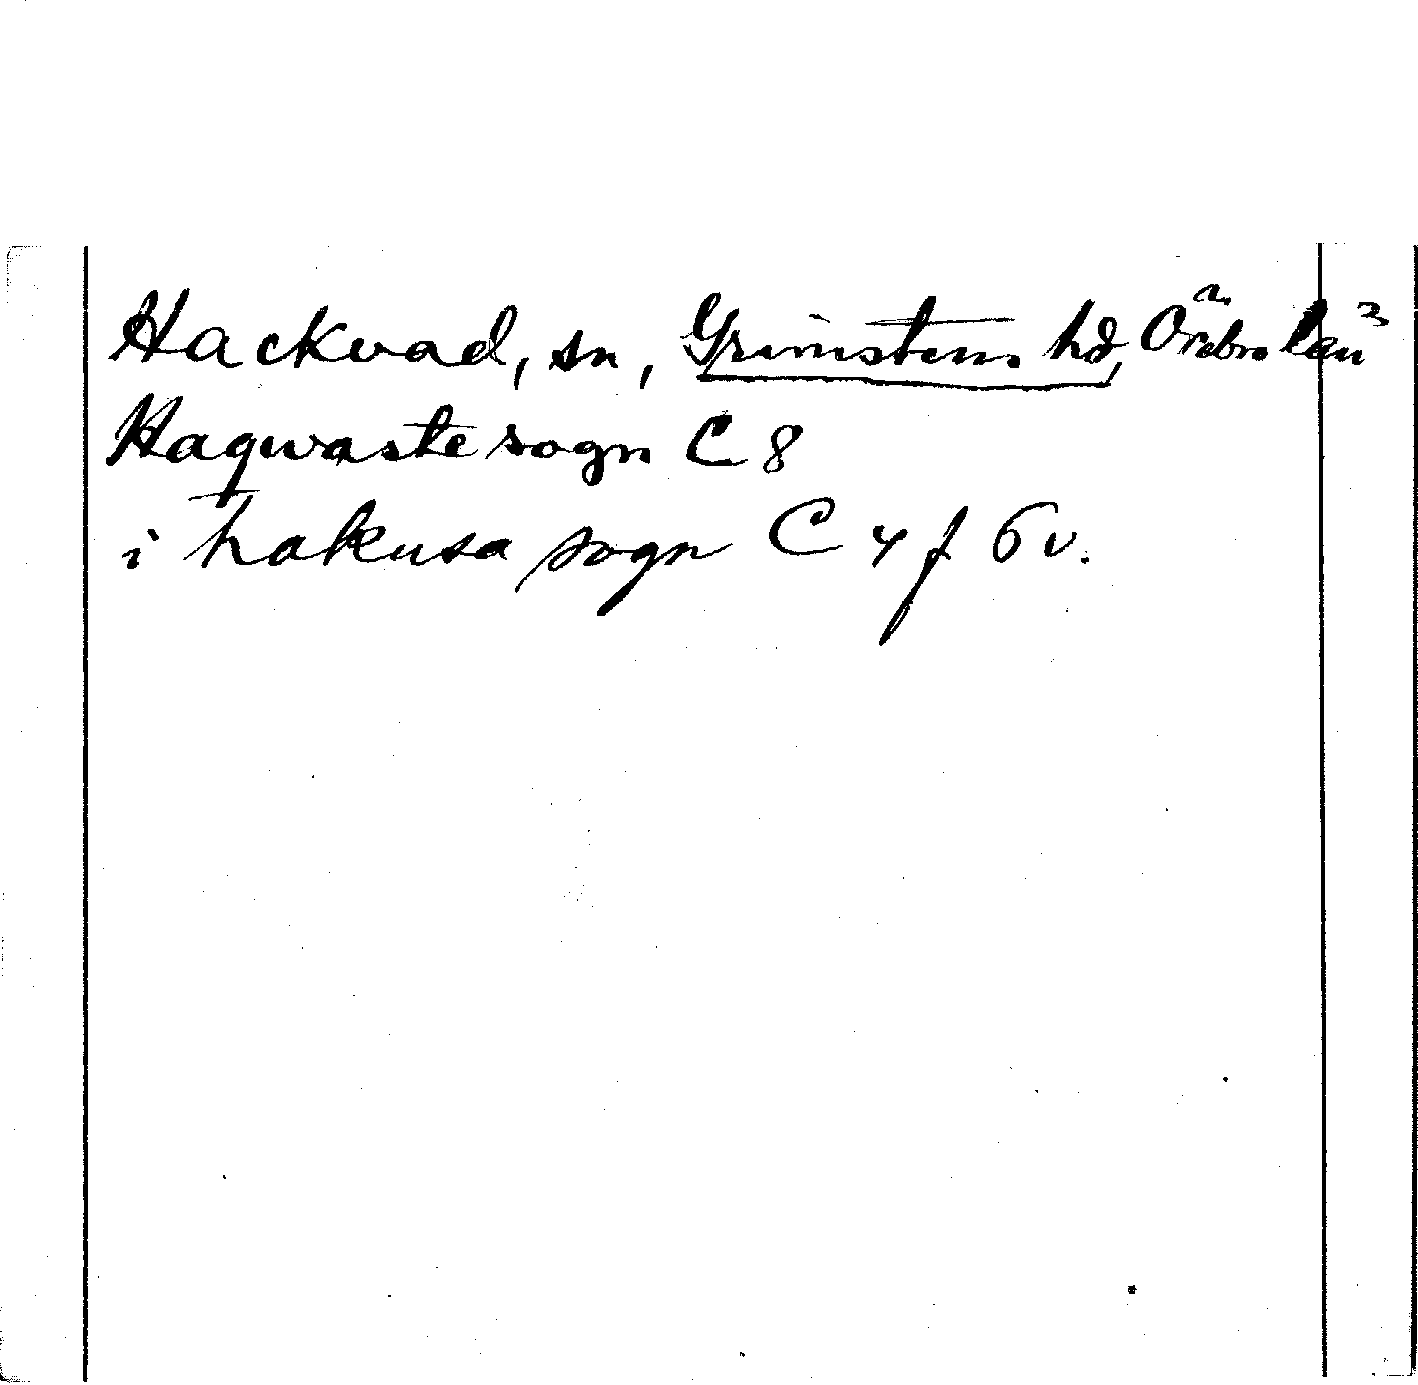 Hackvad, sn, Grimstens hd, Örebro län
Haqwaste sogn C 8
i hakusa sogn C 4 f 6 v.